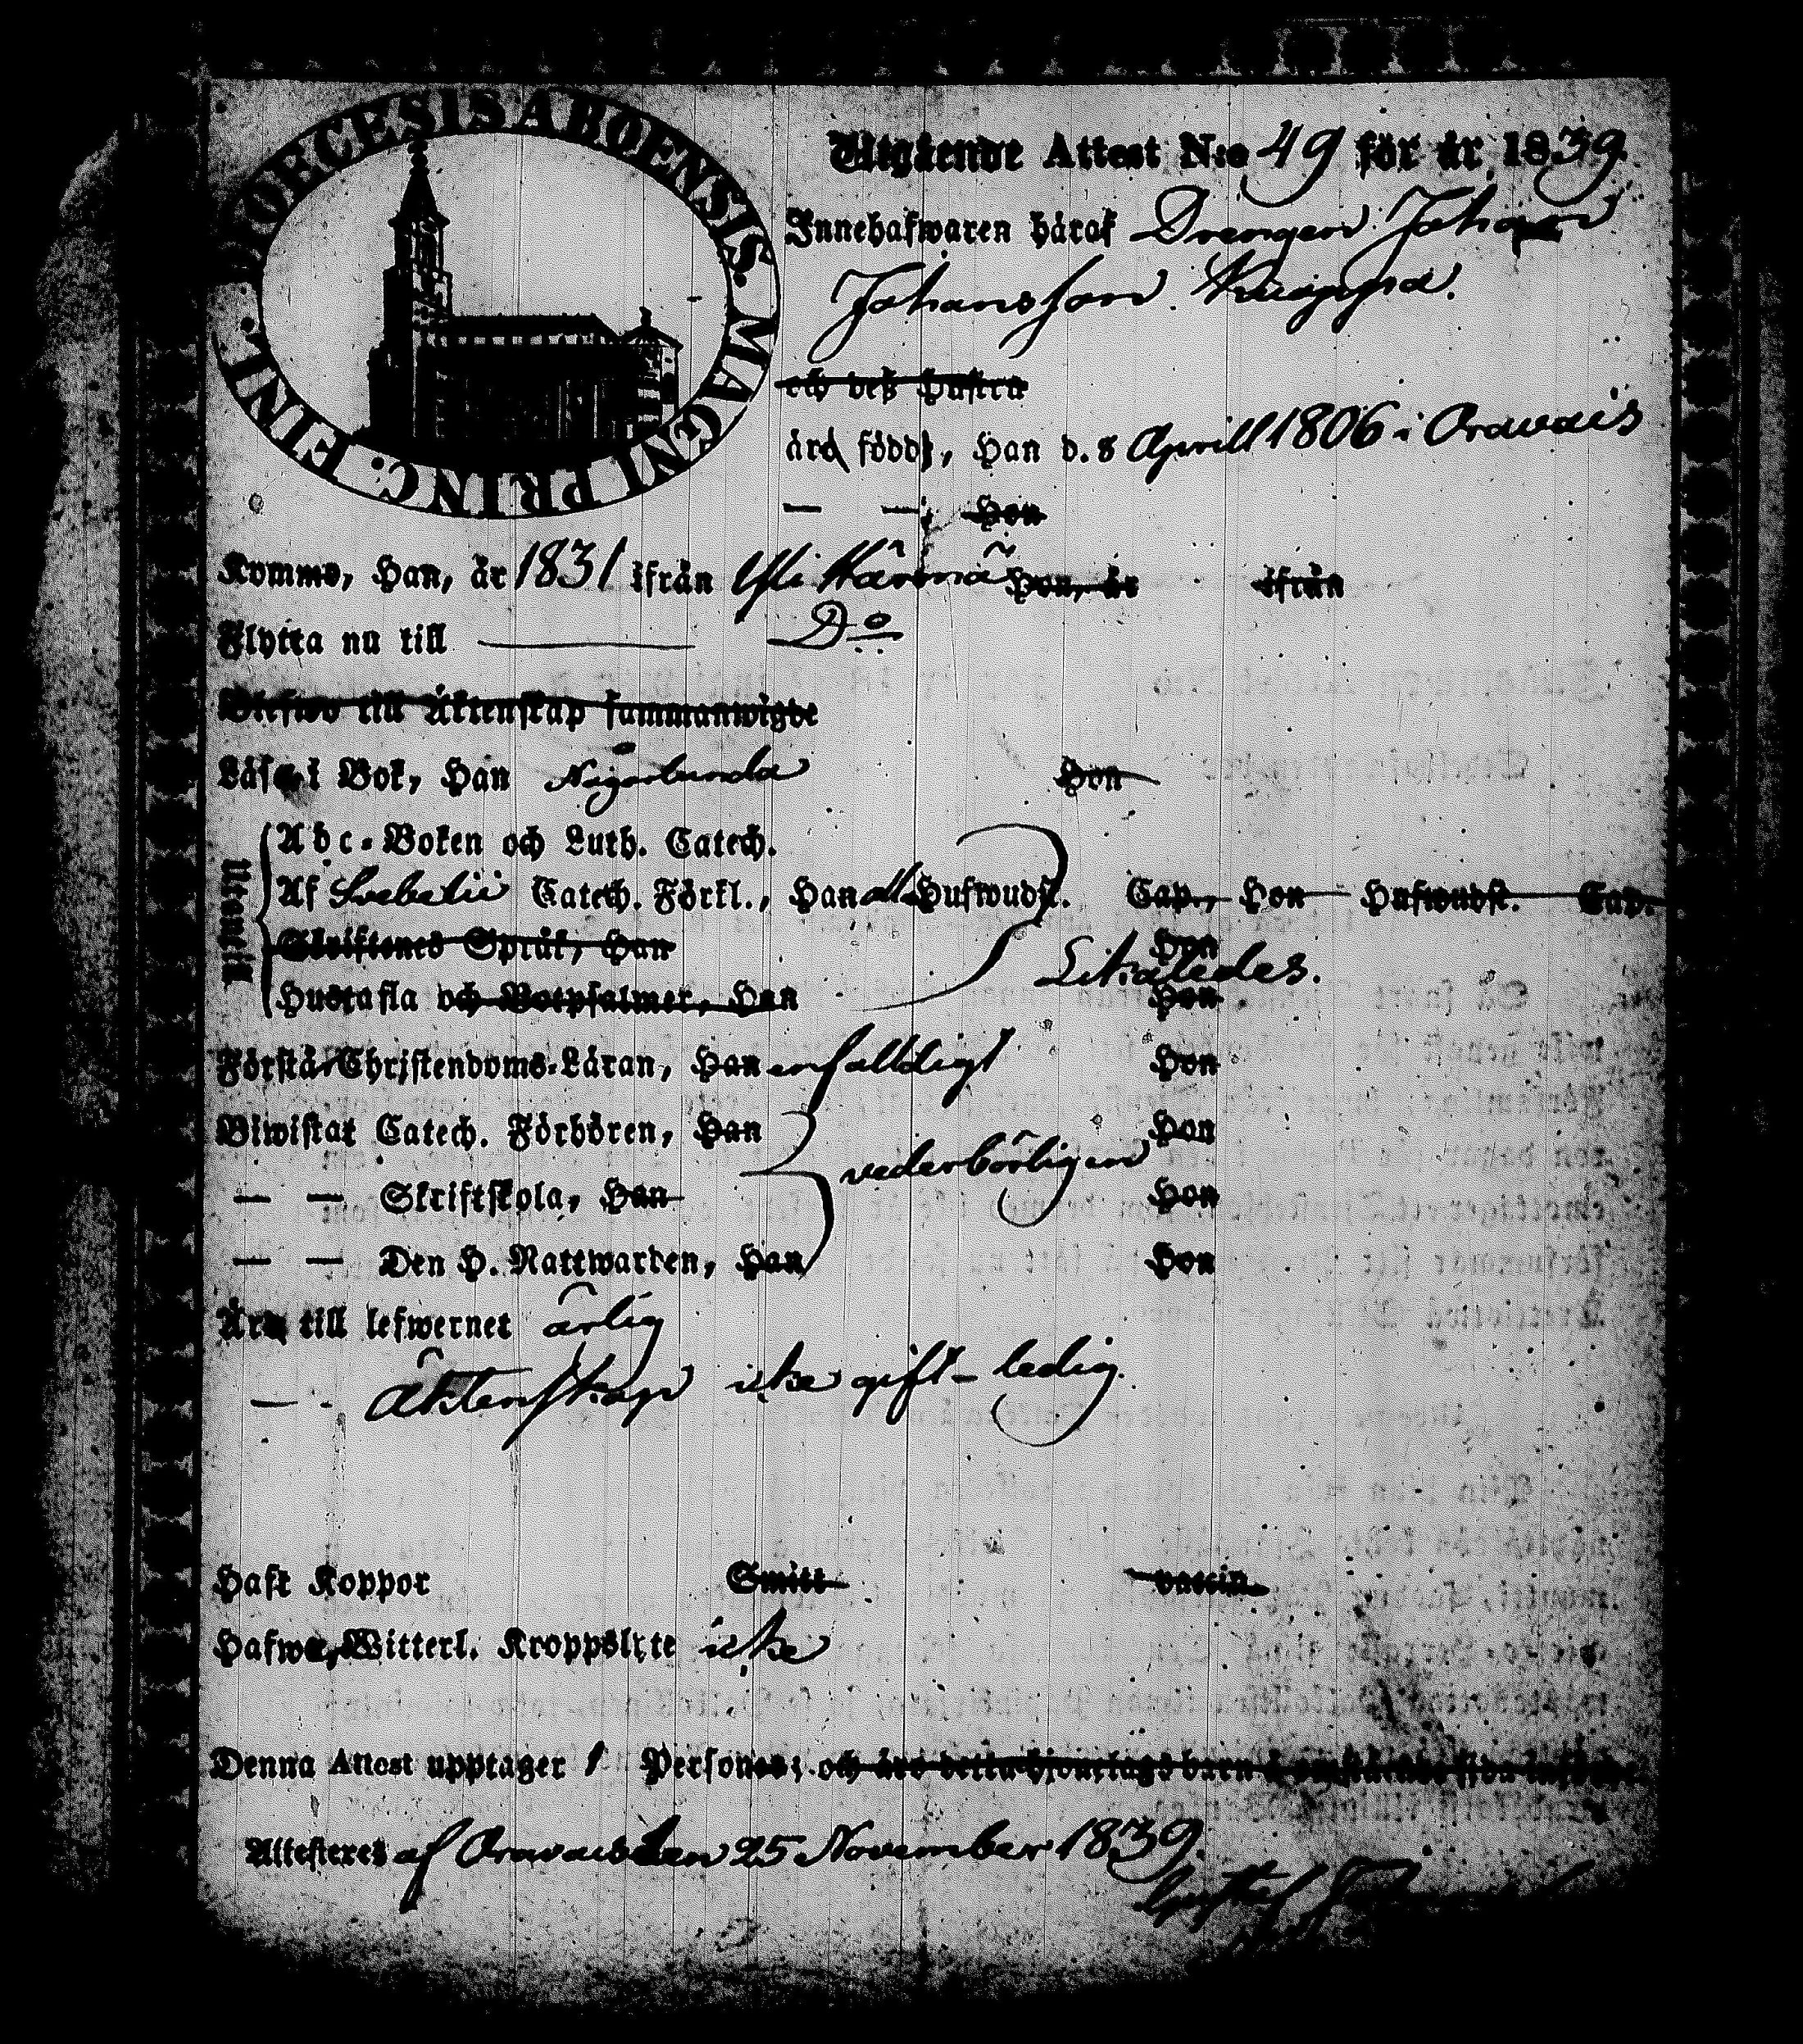 DIOECESIS ABOENSIS. MAGNI PRINC. FINL.
Utgående Attest N:o 49 för år 1839.
Innehafwaren håraf Drengen Johan
Johansson
och deß Hustru
åro född, Han d. 8 Aprill 1806 i Oravais
— — , Hon
Komme, Han, år 1831 ifrån Ylihärmä Hon, år ifrån
Flytta nu till — Do
Blefwo till Äktenskap sammanwigde
Läsa i Bok, Han Någorlunda Hon
Utantill
Abc-Boken och Luth. Catech.
Af Svebelii Catech. Förkl., Han alla Hufwudst. Cap., Hon Hufwudst. Cap.
Skriftenes Språk, Han Hon
Hustafla och Botpsalmer, Han Likaledes. Hon
Förstå Christendoms-Läran, Han enfalldigt Hon
Biwistat Catech. Förhören, Han Hon
vederbörligen
— — Skriftskola, Han Hon
— — Den H. Nattwarden, Han Hon
Äro till lefwernet ärlig
— - Äktenskap icke gift - ledig.
Haft Koppor Smitt vaccin
Hafwa Witterl. Kroppslyte icke
Denna Attest upptager 1 Personer; och äro detta hjonelags barn å omstående sida
Attesteres af Oravais den 25 November 1839.